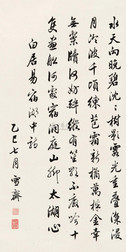 水天向晚碧沈沈樹影霞光重疊深浸
月冷波千頃練苞霜新橘萬株金幸
無案牘何妨醉縱有笙歌不廢吟十
隻畫船何處宿洞庭山腳太湖心
白居易宿湖中詩
乙巳七月雪齋